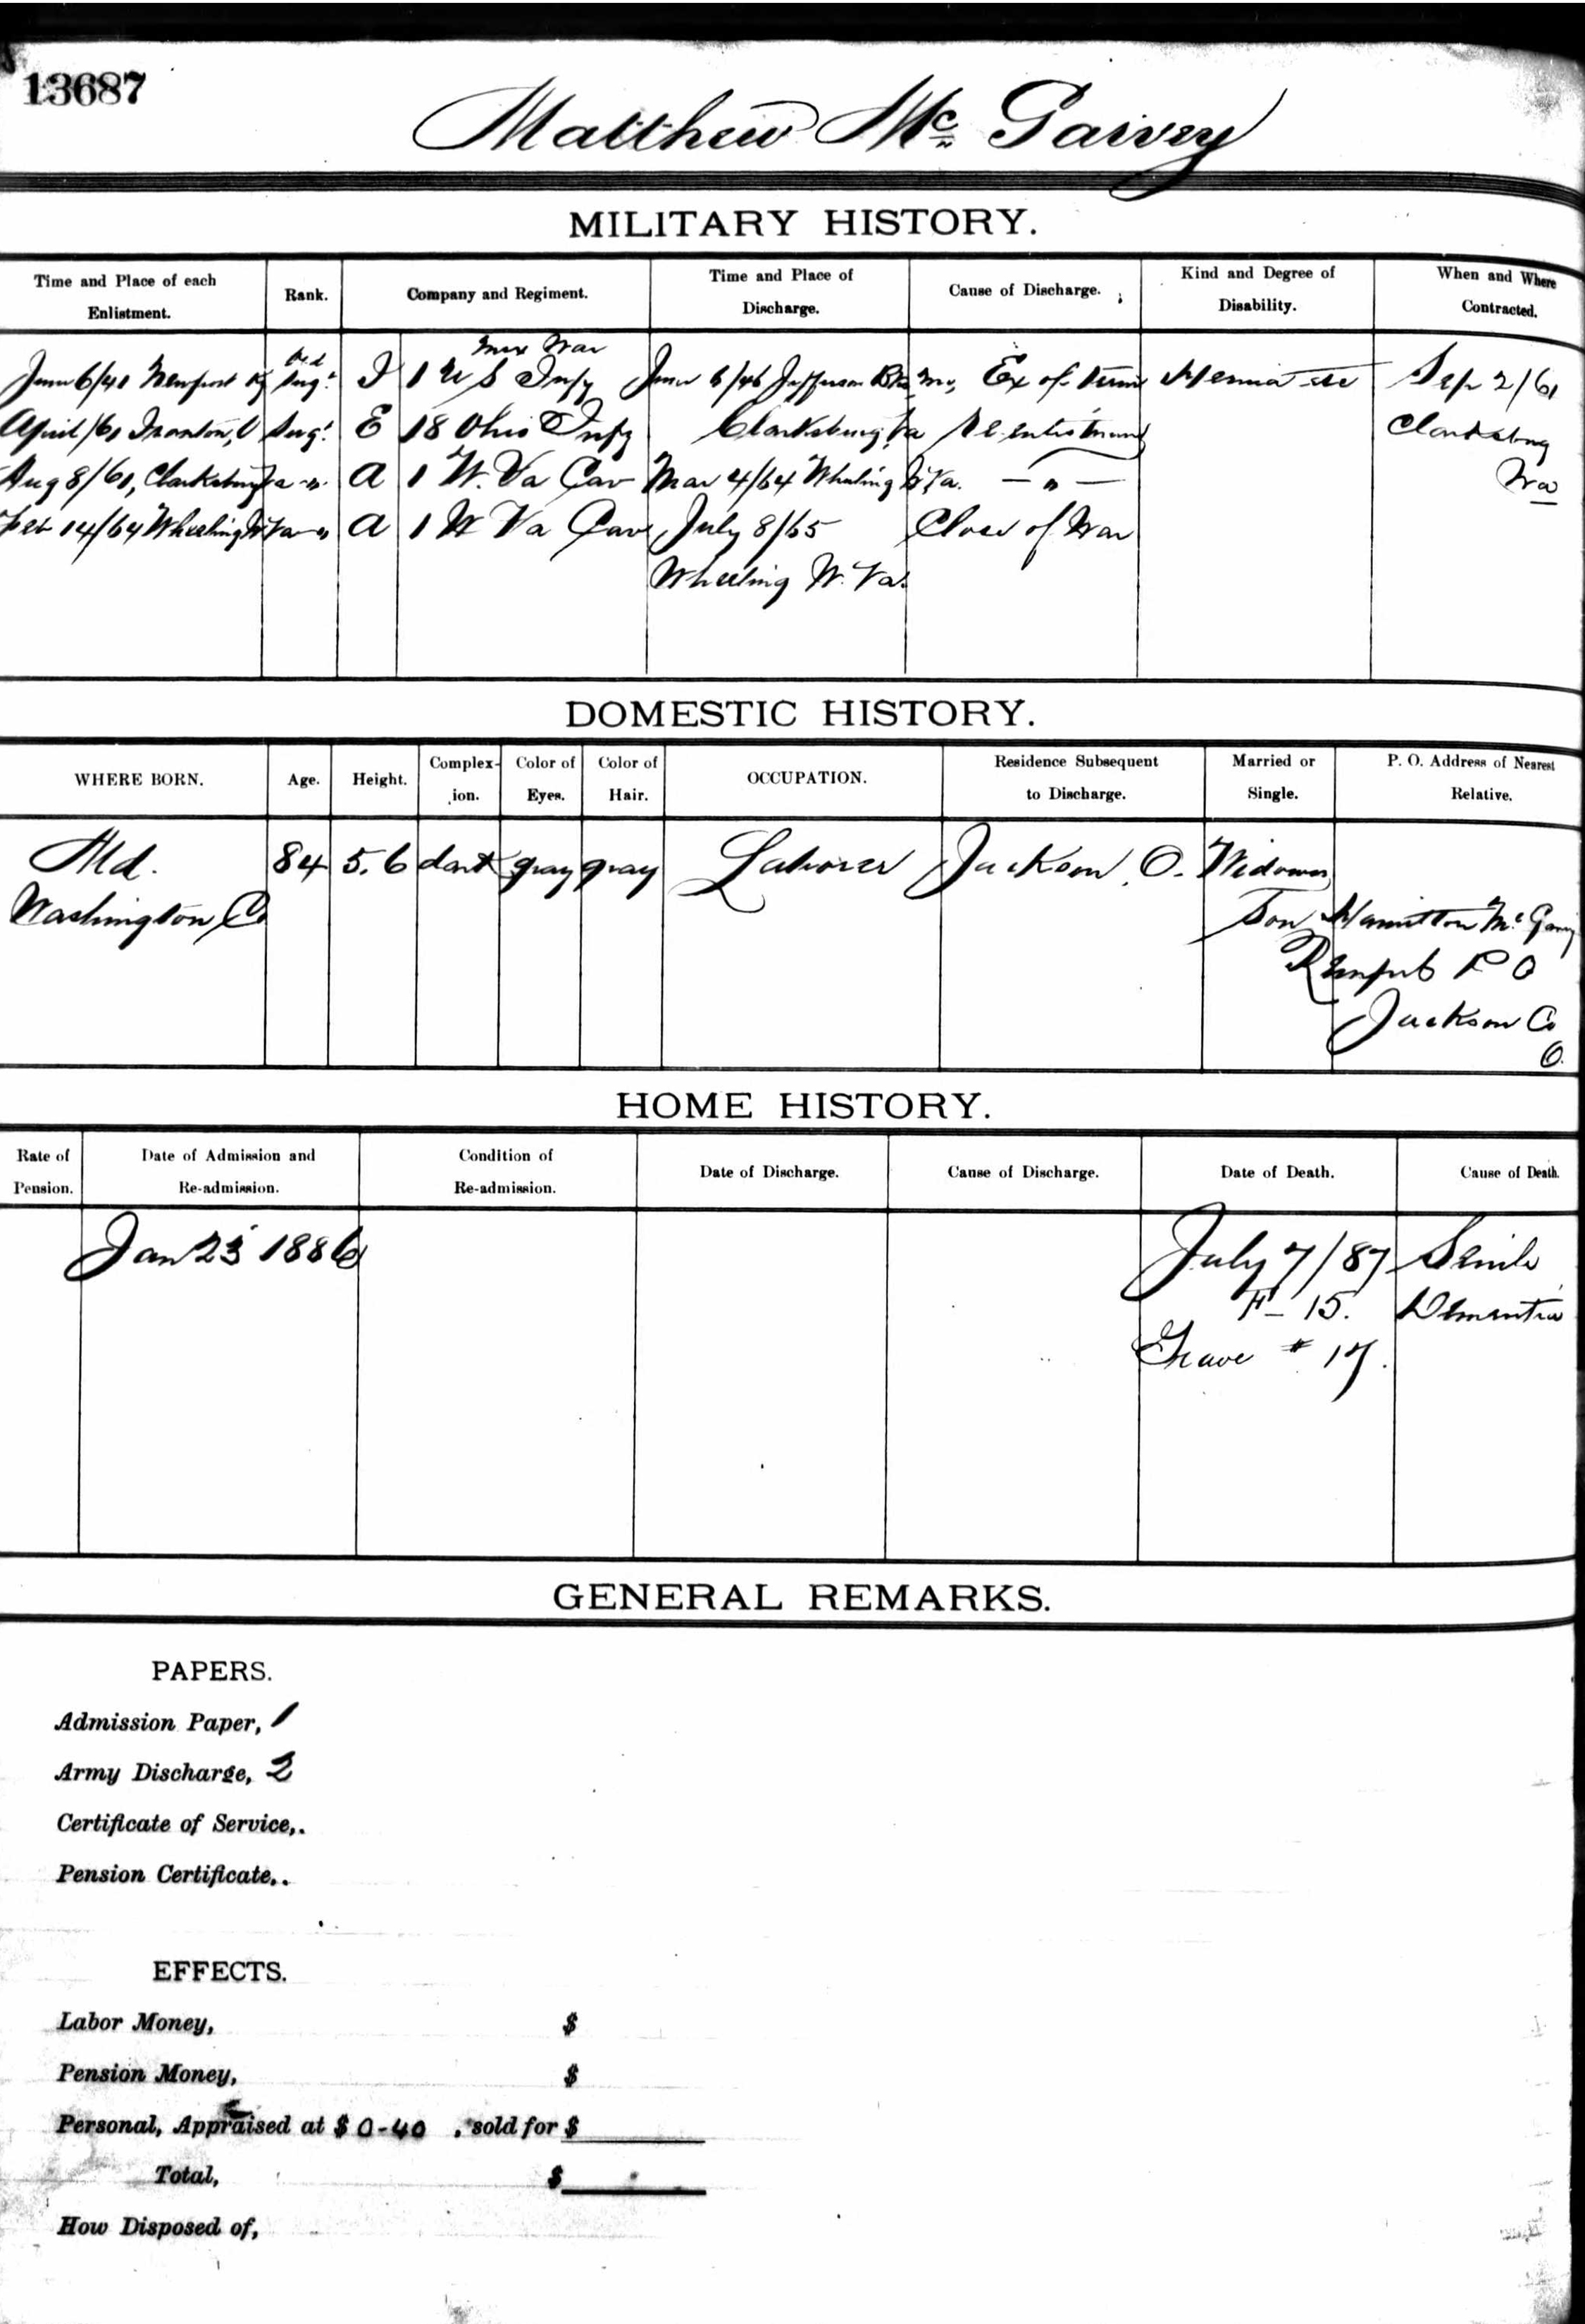 13687
Matthew Mc Garvey
MILITARY HISTORY.
Time and Place of each Enlistment. Rank. Company and Regiment. Time and Place of Discharge. Cause of Discharge. Kind and Degree of Disability. When and Where Contracted.
Mex War
June 6/41 Newport Ky Sergt I 1 U S Infy June 6/46 Jefferson Bks Mo, Ex of Term Hernia Sep 2/61
April /61 Ironton, O Sergt E 18 Ohio Infy Clarksburg Va Re enlistment Clarksburg
Aug 8/61, Clarksburg Va " A 1 W. Va Cav Mar 4/64 Wheeling W Va. — " — W Va
Feb 14/64 Wheeling W Va " A 1 W Va Cav July 8/65 Close of War
Wheeling W. Va.
DOMESTIC HISTORY.
WHERE BORN. Age. Height. Complexion. Color of Eyes. Color of Hair. OCCUPATION. Residence Subsequent to Discharge. Married or Single. P. O. Address of Nearest Relative.
Md. 84 5.6 dark gray gray Laborer Jackson, O. Widower
Washington Co Son Hamilton Mc Garvey
P O
Jackson Co
O.
HOME HISTORY.
Rate of Pension. Date of Admission and Re-admission. Condition of Re-admission. Date of Discharge. Cause of Discharge. Date of Death. Cause of Death.
Jan 23 1886 July 7/87 Senile
15. Dementia
Grave # 17.
GENERAL REMARKS.
PAPERS.
Admission Paper, 1
Army Discharge, 2
Certificate of Service,.
Pension Certificate,.
EFFECTS.
Labor Money, $
Pension Money, $
Personal, Appraised at $ 0-40, sold for $
Total, $
How Disposed of,